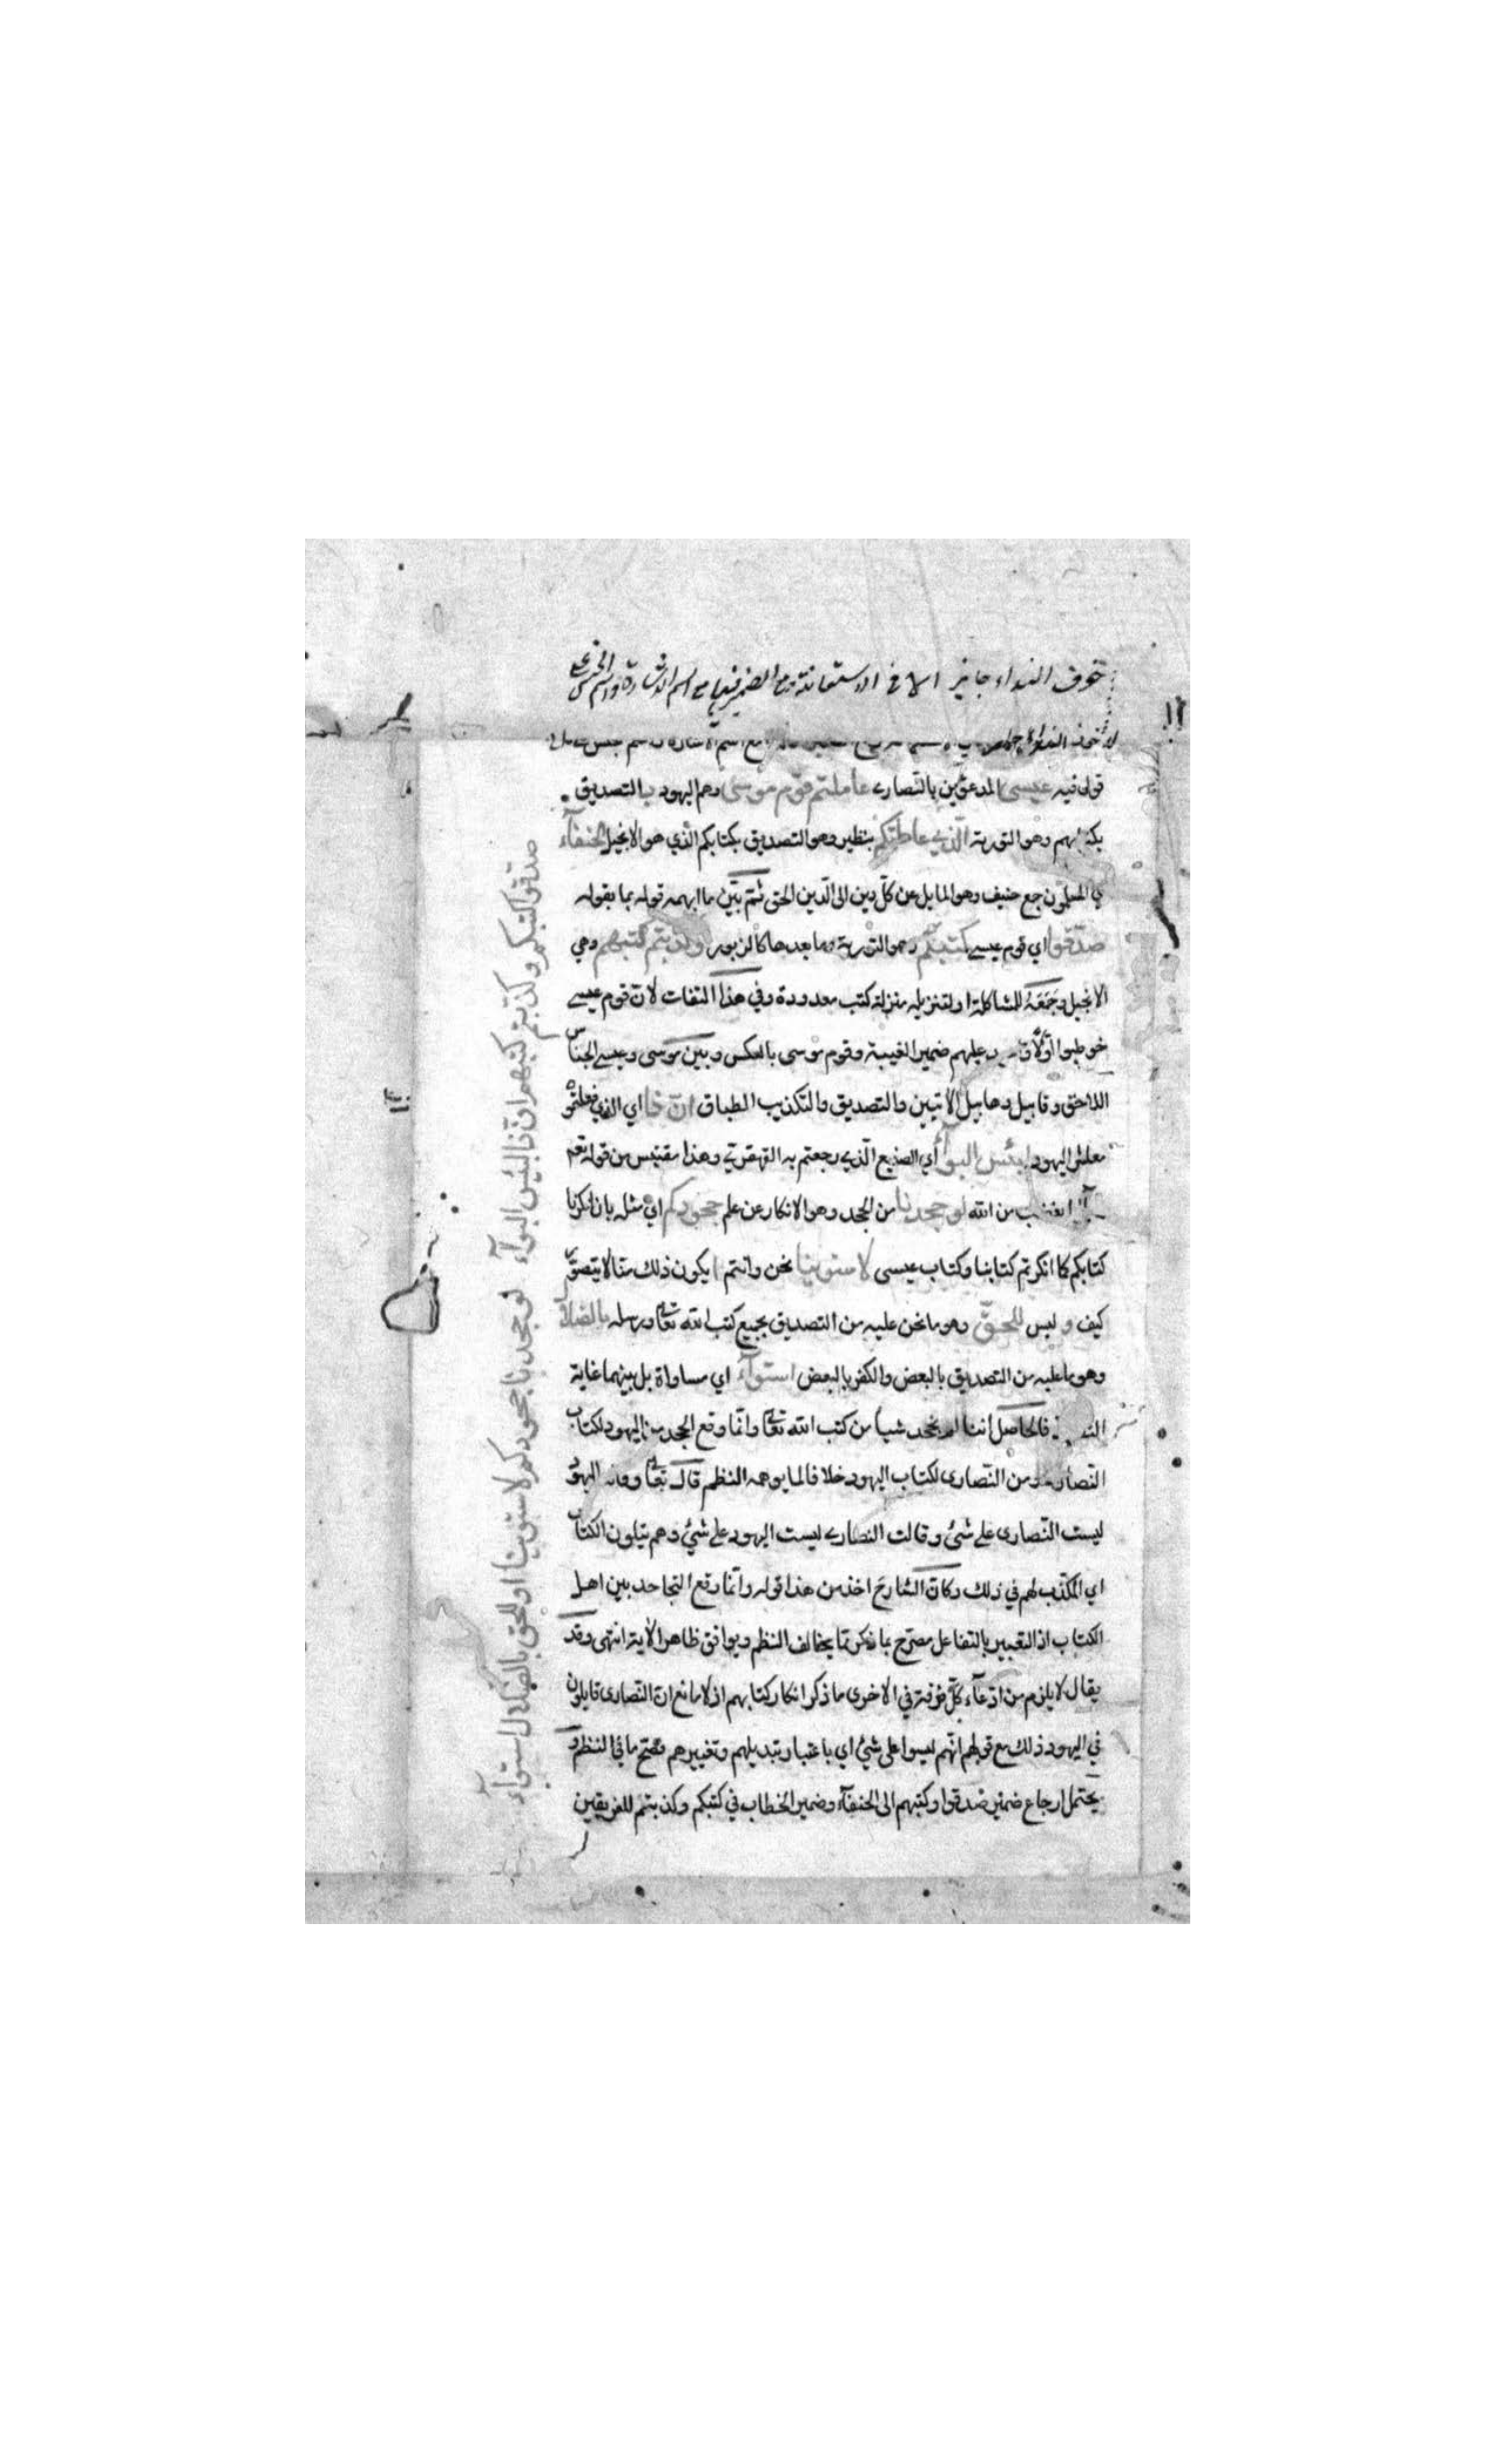 حرف النداء جايز الا في الاستغاثة مع الضمير فيها مع اسم الاشارة واسم الجنس
لان حرف النداء
قولى فيه عيسى المدعوين بالنصارى عاملتم قوم موسى وهم اليهود بالتصديق
بكتابهم وهو التورية الذي عاملتكم بنظيره وهو التصديق بكتابكم الذي هو الانجيل الحنفاء
اي المسلمون جمع حنيف وهو المايل عن كل دين الى الدين الحق ثم بين ما ابهمه قوله بما بقوله
صدقوا اي قوم عيسى كتبكم وهو التورية وما بعدها كالزبور وكذبتم كتبهم وهي
الانجيل وجمعه للمشاكلة او لتنزيله منزلة كتب معدودة وفي هذا التفات لان قوم عيسى
خوطبوا اولا عليهم ضمير الغيبة وقوم موسى بالعكس وبين موسى وعيسى الجناس
اللاحق وقابيل وهابيل الاتيين والتصديق والتكذيب الطباق ان ذا اي الذي فعلتموه
معاشر اليهود لبئس البوآء اي الصنيع الذي رجعتم به القهقرى وهذا مقتبس من قوله تعالى
بغضب من الله لو جحدنا من الجحد وهو الانكار عن علم جحودكم اي مثله بان انكرنا
كتابكم كما انكرتم كتابنا وكتاب عيسى لاستوينا نحن وانتم ايكون ذلك منا لا يتصور
كيف وليس للحق وهو ما نحن عليه من التصديق بجميع كتب الله تعالى ورسله بالضلال
وهو ما عليه من التصديق بالبعض والكفر بالبعض استوآء اي مساواة بل بينهما غاية
فالحاصل اننا لم نجحد شيأ من كتب الله تعالى وانما وقع الجحد من اليهود لكتاب
النصارى ومن النصارى لكتاب اليهود خلافا لما يوهمه النظم قال تعالى وقالت اليهود
ليست النصارى على شئ وقالت النصارى ليست اليهود على شئ وهم يتلون الكتاب
اي المكذب لهم في ذلك وكان الشارح اخذ من هذا قوله وانما وقع التجاحد بين اهل
الكتاب اذ التعبير بالتفاعل مصرح بما ذكر مما يخالف النظم ويوافق ظاهر الاية انتهى وقد
يقال لا يلزم من ادعآء كل فرقة في الاخرى ما ذكر انكار كتابهم اذ لا مانع ان النصارى قايلون
في اليهود ذلك مع قولهم انهم ليسوا على شئ اي باعتبار تبديلهم وتغييرهم فصح ما في النظم و
يحتمل ارجاع ضمير صدقوا وكتبهم الى الحنفآء وضمير الخطاب في كتبكم وكذبتم للفريقين
صدقوا كتبكم وكذبتم كتبهم ان ذا لبئس البوآء لو جحدنا جحودكم لاستوينا او للحق بالضلال استوآء